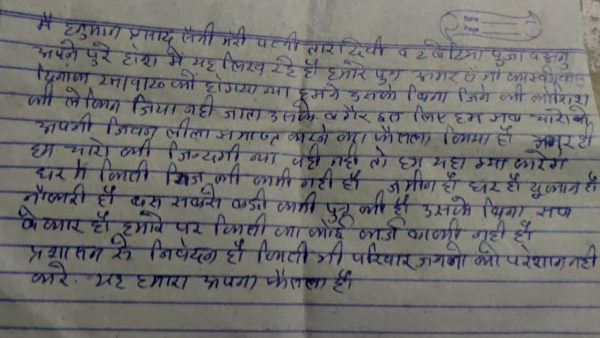 मै हनुमान प्रसाद सैनी मेरी पत्नी तारा देवी व 2 बेटिया पुजा व अन्नु
अपने पुरे होश मे यह लिख रहे है हमारे पुत्र अमर का
स्वर्गवास हो गया था हमने उसके बिना जिने की कोशिश
की लेकिन जिया नही जाता उसके वगैर इस लिए हम सब चारो ने
अपनी जिवन लीला समाप्त करने का फैसला लिया है अमर ही
हम चारो की जिन्दगी था वही नही तो हम यहा क्या करेगे
घर मे किसी चिज की कमी नही है जमीन है घर है दुकान है
नौकरी है बस सबसे बडी कमी पुत्र की है उसके बिना सब
बेकार है हमारे पर किसी का कोई कर्जा बाकी नही है
प्रशासन से निवेदन है किसी भी परिवार जनो को परेशान नही
करे. यह हमारा अपना फैसला है।